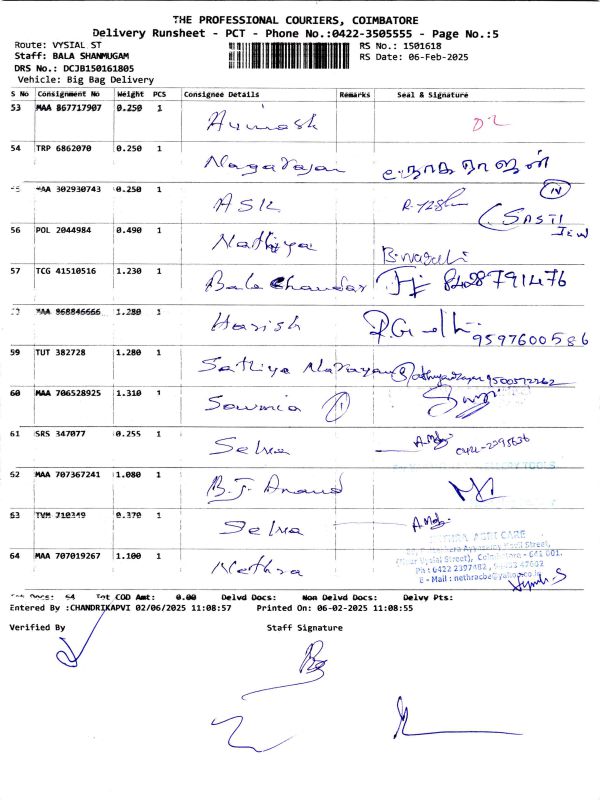 THE PROFESSIONAL COURIERS, COIMBATORE
Delivery Runsheet - PCT - Phone No.:0422-3505555 - Page No.:5
Route: VYSIAL ST RS No.: 1501618
Staff: BALA SHANMUGAM RS Date: 06-Feb-2025
DRS No.: DCJB150161805
Vehicle: Big Bag Delivery
S No Consignment No Weight PCS Consignee Details Remarks Seal & Signature
53 MAA 867717907 0.250 1 Avinash
54 TRP 6862070 0.250 1 Nagarajan உ.நாகராஜன்
MAA 302930743 0.250 1 ASK (SASTI
56 POL 2044984 0.490 1 Nathiya
57 TCG 41510516 1.230 1 Bala Chandar 8428791476
MAA 868846666 1.280 1 Harish 9597600586
59 TUT 382728 1.280 1 Sathya Narayan
60 MAA 706528925 1.310 1 Sowmia 1
61 SRS 347077 0.255 1 Selva
62 MAA 707367241 1.080 1 B.J. Anand
63 TVM 710349 0.370 1 Selva
64 MAA 707019267 1.100 1 Nethra
AGRI CARE
Street,
(Near Vysial Street), Coimbatore - 641 001.
Ph : 0422 2397482
E - Mail : nethracbe@yahoo.co.in
Tot Docs: 64 Tot COD Amt: 0.00 Delvd Docs: Non Delvd Docs: Delvy Pts:
Entered By :CHANDRIKAPVI 02/06/2025 11:08:57 Printed On: 06-02-2025 11:08:55
Verified By Staff Signature